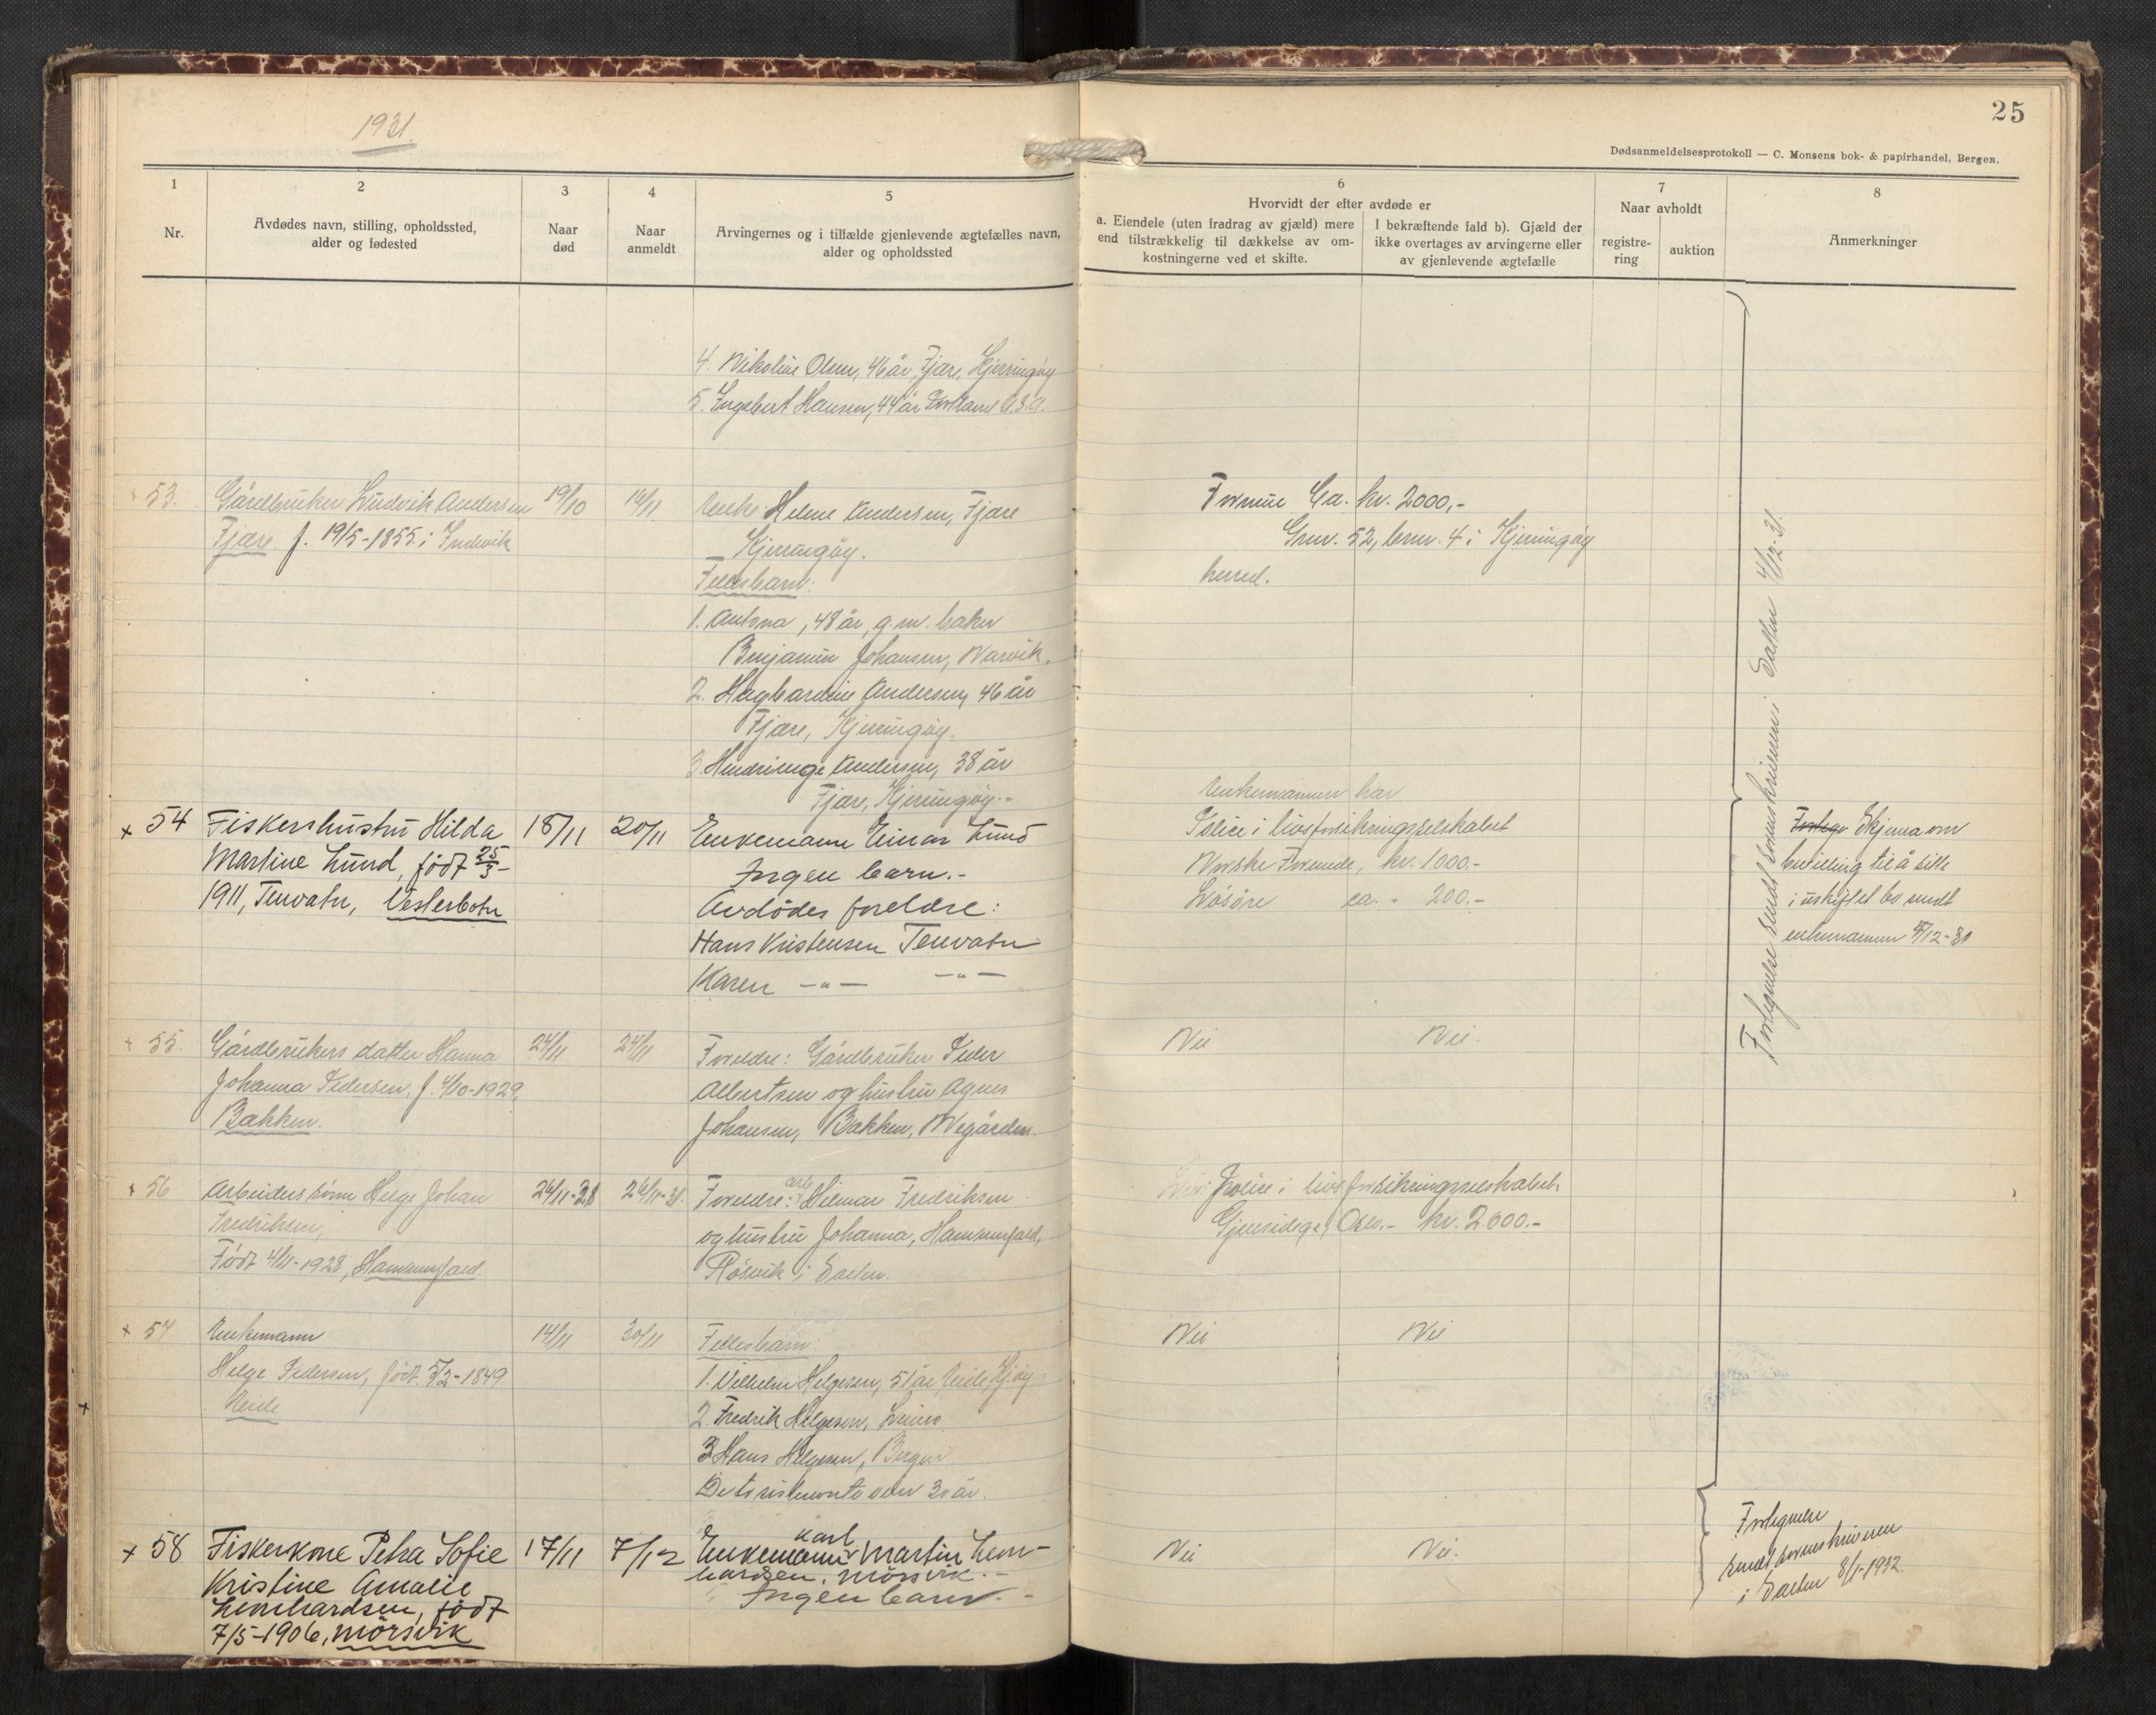 1931.
25
Dødsanmeldelsesprotokoll — C. Monsens bok- & papirhandel, Bergen.
1
Nr.
2
Avdødes navn, stilling, opholdssted,
alder og fødested
3
Naar
død
4
Naar
anmeldt
5
Arvingernes og i tilfælde gjenlevende ægtefælles navn,
alder og opholdssted
6
Hvorvidt der efter avdøde er
a. Eiendele (uten fradrag av gjæld) mere
end tilstrækkelig til dækkelse av om-
kostningerne ved et skifte.
I bekræftende fald b). Gjæld der
ikke overtages av arvingerne eller
av gjenlevende ægtefælle
7
Naar avholdt
registre-
ring
auktion
8
Anmerkninger
4. Nikoline Olsen, 46 år, Fjære, Kjerringøy
5. Ingebert Hansen, 44 år U.S.A.
53. Gårdbruker Ludvik Andersen 19/10 14/11 Enke Helene Andersen, Fjære
Fjære f. 19/5-1855 i
Kjerringøy.
Fellesbarn:
1. Antona, 48 år, g.m. baker
Benjamin Johansen, Narvik.
2. Hagbardine Andersen, 46 år
Fjære, Kjerringøy.
3. Andersen, 38 år
Fjære, Kjerringøy.-
Formue Ca. kr. 2000,-
Gnr. 52, bnr. 4 i Kjerringøy
herred.
x 54 Fiskerhustru Hilda 18/11 20/11 Enkemann Einar Lund
Martine Lund, født 25/3-
1911, Tennvatn, Vesterbotn
Ingen barn.-
Avdødes foreldre:
Hans Kristensen Tennvatn
Karen -"- -"-
Enkemannen har
Police i livsforsikringsselskabet
Norske Forenede, kr. 1000.-
Løsøre ca. " 200.-
Skjema om
bevilling til å sitte
i uskiftet bo sendt
enkemannen 4/12-31
Fortegnelse sendt sorenskriveren i Salten 4/12-31.
55. Gårdbrukers datter Hanna 24/11 24/11 Foreldre: Gårdbruker Peder
Johanna Pedersen, f. 4/10-1929,
Bakken.
Albertsen og hustru Agnes
Johansen, Bakken, Wegården.
Nei Nei.
x 56 Arbeiders sønn Helge Johan 24/11-31 24/11-31. Foreldre: arb. Hilmar Fredriksen
Fredriksen,
Født 4/11-1928,
og hustru Johanna,
Røsvik i Salten.
Police i livsforsikringsselskabet
Gjensidige, Oslo.- kr. 2000.-
x 57 Enkemann 14/11 30/11 Fellesbarn:
Helge Pedersen, født 5/2-1849
Eide
1. Vilhelm Helgesen, 51 år Eide, Kj.øy
2. Fredrik Helgesen,
3. Hans Helgesen, Bergen
De to sistnevnte over 30 år.
Nei Nei
x 58 Fiskerkone Petra Sofie 17/11 7/12 Enkemann Karl Martin Leon-
Kristine Amalie
Leonhardsen, født
7/5-1906, Mørsvik
hardsen, Mørsvik.-
Ingen barn.-
Nei Nei.
Fortegnelse
sendt sorenskriveren
i Salten 8/1-1932.